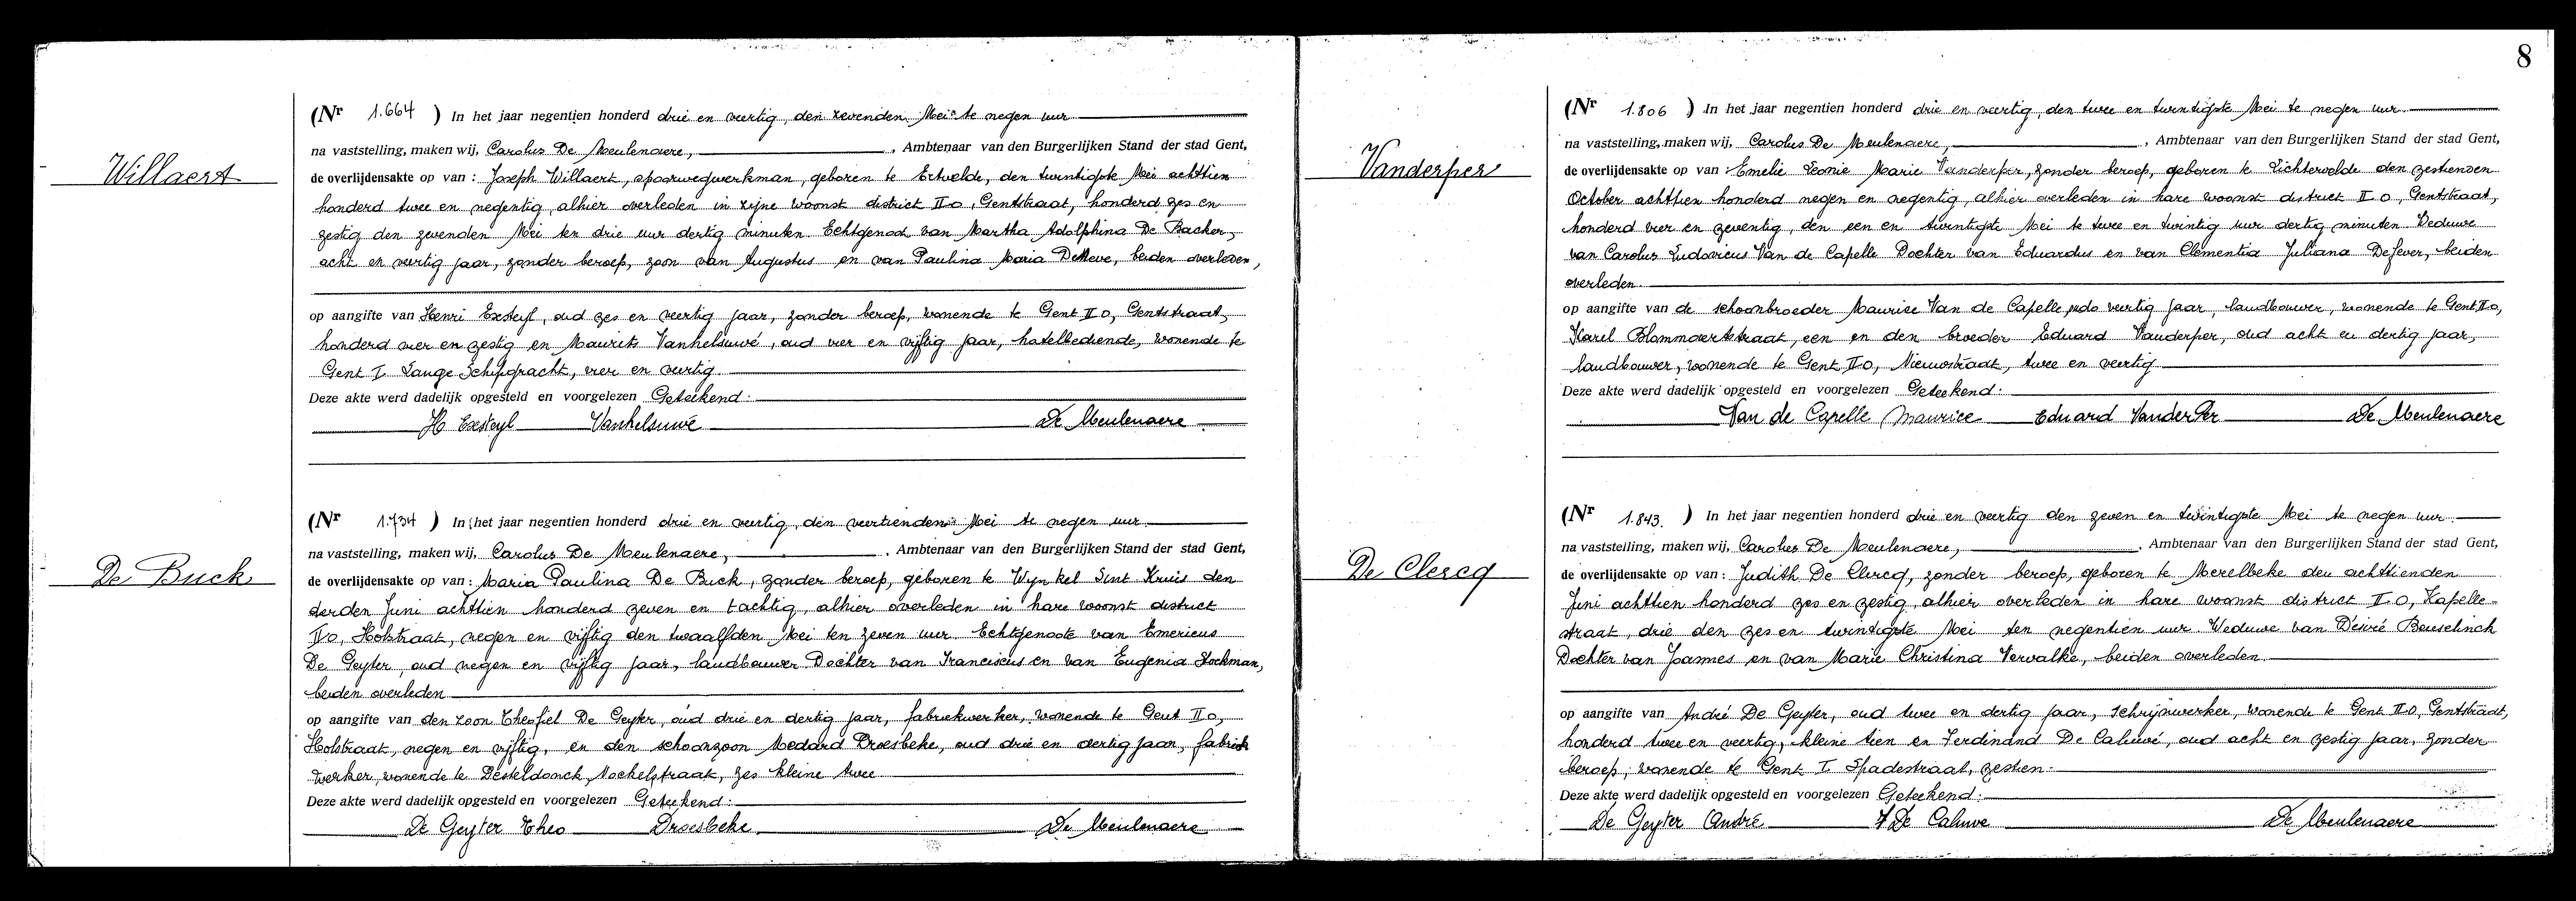 8
Willaert
(Nr 1.664 ) In het jaar negentien honderd drie en veertig, den zevenden Mei te negen uur
na vaststelling, maken wij, Carolus De Meulenaere, , Ambtenaar van den Burgerlijken Stand der stad Gent,
de overlijdensakte op van : Joseph Willaert, spoorwegwerkman, geboren te Ertvelde, den twintigste Mei achttien
honderd twee en negentig, alhier overleden in zijne woonst district IIo, Gentstraat, honderd zes en
zestig den zevenden Mei ten drie uur dertig minuten Echtgenoot van Martha Adolphina De Backer,
acht en veertig jaar, zonder beroep, zoon van Augustus en van Paulina Maria DeNeve, beiden overleden,
op aangifte van Henri Exsteyl, oud zes en veertig jaar, zonder beroep, wonende te Gent IIo, Gentstraat,
honderd vier en zestig en Maurits Vanhelsuwé, oud vier en vijftig jaar, hotelbediende, wonende te
Gent I Lange Schipgracht, vier en veertig.
Deze akte werd dadelijk opgesteld en voorgelezen Geteekend:
H Exsteyl Vanhelsuwé De Meulenaere
De Buck
(Nr 1.734 ) In het jaar negentien honderd drie en veertig, den veertienden Mei te negen uur
na vaststelling, maken wij, Carolus De Meulenaere, , Ambtenaar van den Burgerlijken Stand der stad Gent,
de overlijdensakte op van : Maria Paulina De Buck, zonder beroep, geboren te Wynkel Sint Kruis den
derden Juni achttien honderd zeven en tachtig, alhier overleden in hare woonst district
IIo, Holstraat, negen en vijftig den twaalfden Mei ten zeven uur Echtgenoote van Emericus
De Geyter, oud negen en vijftig jaar, landbouwer Dochter van Franciscus en van Eugenia Stockman,
beiden overleden
op aangifte van den zoon Theofiel De Geyter, oud drie en dertig jaar, fabriekwerker, wonende te Gent IIo,
Holstraat, negen en vijftig, en den schoonzoon Medard Droesbeke, oud drie en dertig jaar, fabriek
werker, wonende te Desteldonck, Mochelstraat, zes kleine twee
Deze akte werd dadelijk opgesteld en voorgelezen Geteekend:
De Geyter Theo Droesbeke De Meulenaere
Vanderper
(Nr 1.806 ) In het jaar negentien honderd drie en veertig, den twee en twintigste Mei te negen uur
na vaststelling, maken wij, Carolus De Meulenaere, , Ambtenaar van den Burgerlijken Stand der stad Gent,
de overlijdensakte op van : Emelie Leonie Marie Vanderper, zonder beroep, geboren te Lichtervelde den zestienden
October achttien honderd negen en negentig, alhier overleden in hare woonst district IIo, Gentstraat,
honderd vier en zeventig, den een en twintigste Mei te twee en twintig uur dertig minuten Weduwe
van Carolus Ludovicus Van de Capelle Dochter van Eduardus en van Clementia Juliana Defever, beiden
overleden.
op aangifte van de schoonbroeder Maurice Van de Capelle oud veertig jaar, landbouwer, wonende te Gent IIo,
Karel Blommaertstraat, een en den broeder Eduard Vanderper, oud acht en dertig jaar,
landbouwer, wonende te Gent IIo, Nieuwstraat, twee en veertig
Deze akte werd dadelijk opgesteld en voorgelezen Geteekend:
Van de Capelle Maurice Eduard VanderPer De Meulenaere
De Clercq
(Nr 1.843. ) In het jaar negentien honderd drie en veertig den zeven en twintigste Mei te negen uur
na vaststelling, maken wij, Carolus De Meulenaere, , Ambtenaar van den Burgerlijken Stand der stad Gent,
de overlijdensakte op van : Judith De Clercq, zonder beroep, geboren te Merelbeke den achttienden
Juni achttien honderd zes en zestig, alhier overleden in hare woonst district IIo, Kapelle-
straat, drie den zes en twintigste Mei ten negentien uur Weduwe van Désiré Beuselinck
Dochter van Joannes en van Marie Christina Vervalke, beiden overleden
op aangifte van André De Geyter, oud twee en dertig jaar, schrijnwerker, wonende te Gent IIo, Gentstraat,
honderd twee en veertig, kleine tien en Ferdinand De Caluwé, oud acht en zestig jaar, zonder
beroep, wonende te Gent I Spadestraat, zestien.
Deze akte werd dadelijk opgesteld en voorgelezen Geteekend:
De Geyter André F De Caluwe De Meulenaere